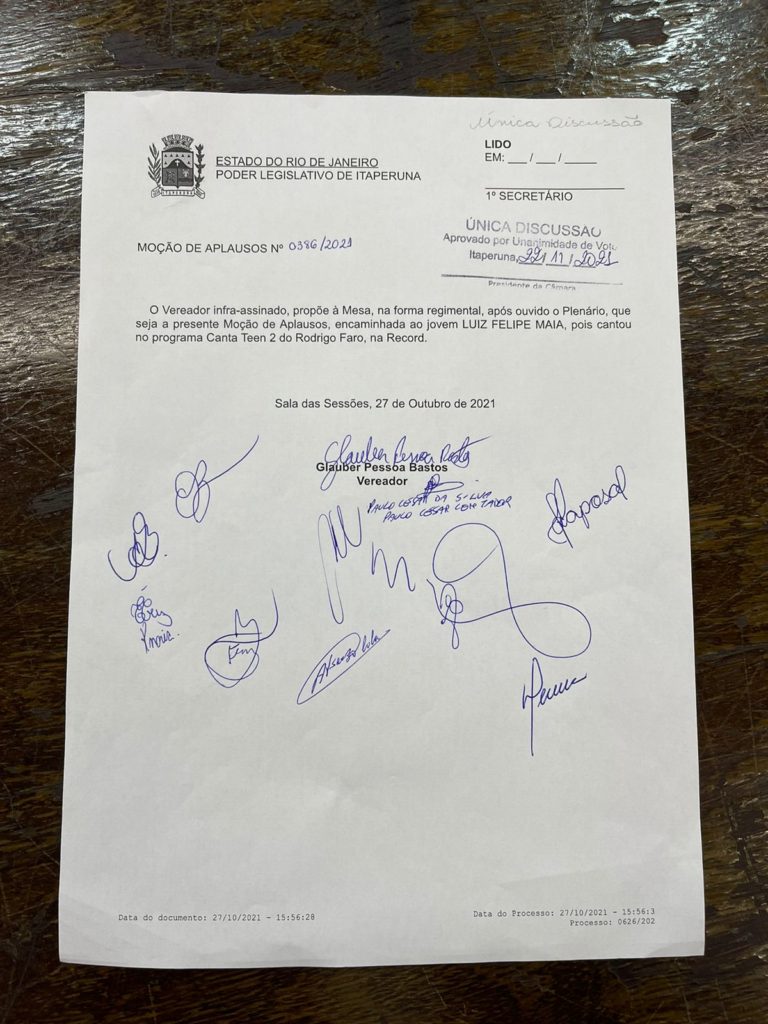 Única Discussão
ESTADO DO RIO DE JANEIRO
PODER LEGISLATIVO DE ITAPERUNA
LIDO
EM: ___ / ___ / _____
1º SECRETÁRIO
MOÇÃO DE APLAUSOS Nº 0386/2021
ÚNICA DISCUSSAO
Aprovado por Unanimidade de Voto
Itaperuna, 22/11/2021
Presidente da Câmara
O Vereador infra-assinado, propõe à Mesa, na forma regimental, após ouvido o Plenário, que
seja a presente Moção de Aplausos, encaminhada ao jovem LUIZ FELIPE MAIA, pois cantou
no programa Canta Teen 2 do Rodrigo Faro, na Record.
Sala das Sessões, 27 de Outubro de 2021
Glauber Pessoa
Glauber Pessoa Bastos
Vereador
PAULO CESAR DA SILVA
PAULO CESAR CONTADOR
Raposo
Data do documento: 27/10/2021 - 15:56:28
Data do Processo: 27/10/2021 - 15:56:3
Processo: 0626/202